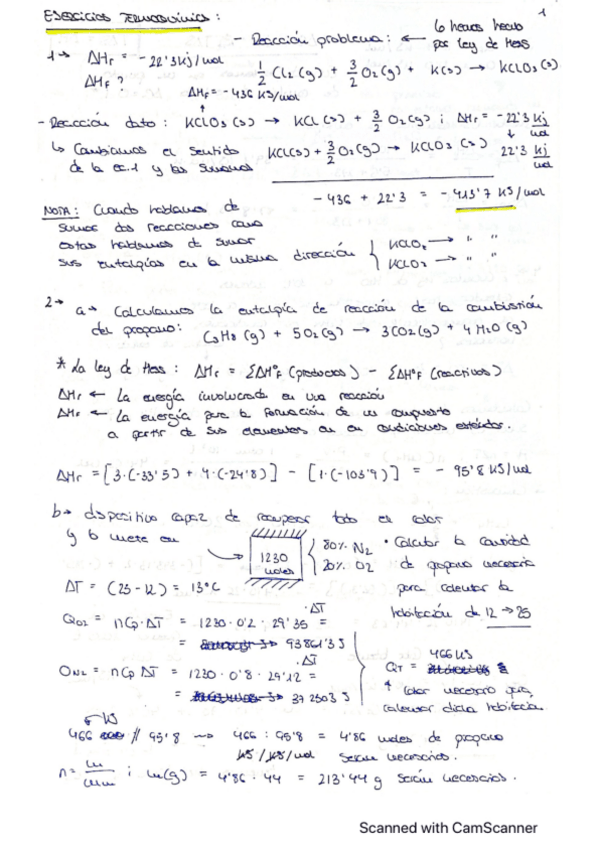 Ejercicios Termoquímica :
1
- Reacción problema : ← lo hemos hecho por ley de Hess
1→ ΔHr = - 22'3 kJ/mol
ΔHf ?
1/2 Cl2 (g) + 3/2 O2 (g) + K(s) → KClO3 (s)
ΔHf = - 436 KJ/mol
- Reacción dato : KClO3 (s) → KCl (s) + 3/2 O2 (g) ; ΔHr = - 22'3 kJ/mol
↳ Cambiamos el sentido de la ec. 1 y las sumamos
KCl(s) + 3/2 O2 (g) → KClO3 (s) 22'3 kJ/mol
- 436 + 22'3 = - 413'7 KJ/mol
NOTA : Cuando hablamos de
sumar dos reacciones como
estas hablamos de sumar
sus entalpías en la misma dirección
KClO3 → " "
KClO3 → " "
2→ a→ Calculamos la entalpía de reacción de la combustión
del propano : C3H8 (g) + 5O2 (g) → 3CO2 (g) + 4H2O (g)
* La ley de Hess : ΔHr = ΣΔHºF (productos) - ΣΔHºF (reactivos)
ΔHr ← La energía involucrada en una reacción
ΔHf ← La energía para la formación de un compuesto
a partir de sus elementos en condiciones estándar.
ΔHr = [3·(-33'5) + 4·(-24'8)] - [1·(-103'9)] = - 95'8 KJ/mol
b→ dispositivo capaz de recuperar todo el calor
y lo mete en
1230 moles
80% N2
20% O2
• Calcular la cantidad
de propano necesaria
para calentar la
habitación de 12 → 25
ΔT = (25 - 12) = 13ºC
QO2 = nCp·ΔT = 1230·0'2·29'35·ΔT =
= 93861'3 J
QN2 = nCp ΔT = 1230·0'8·29'12·ΔT =
= 372503 J
QT = 466 KJ
↑ Calor necesario para
calentar dicha habitación
466 KJ // 95'8 → 466 : 95'8 = 4'86 moles de propano
KJ / KJ/mol serán necesarios.
n = m/Mm ; m(g) = 4'86 · 44 = 213'44 g serán necesarios.
Scanned with CamScanner